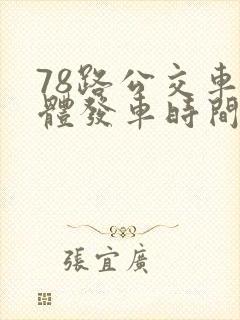 78路公交車
體發車時間
張宜廣